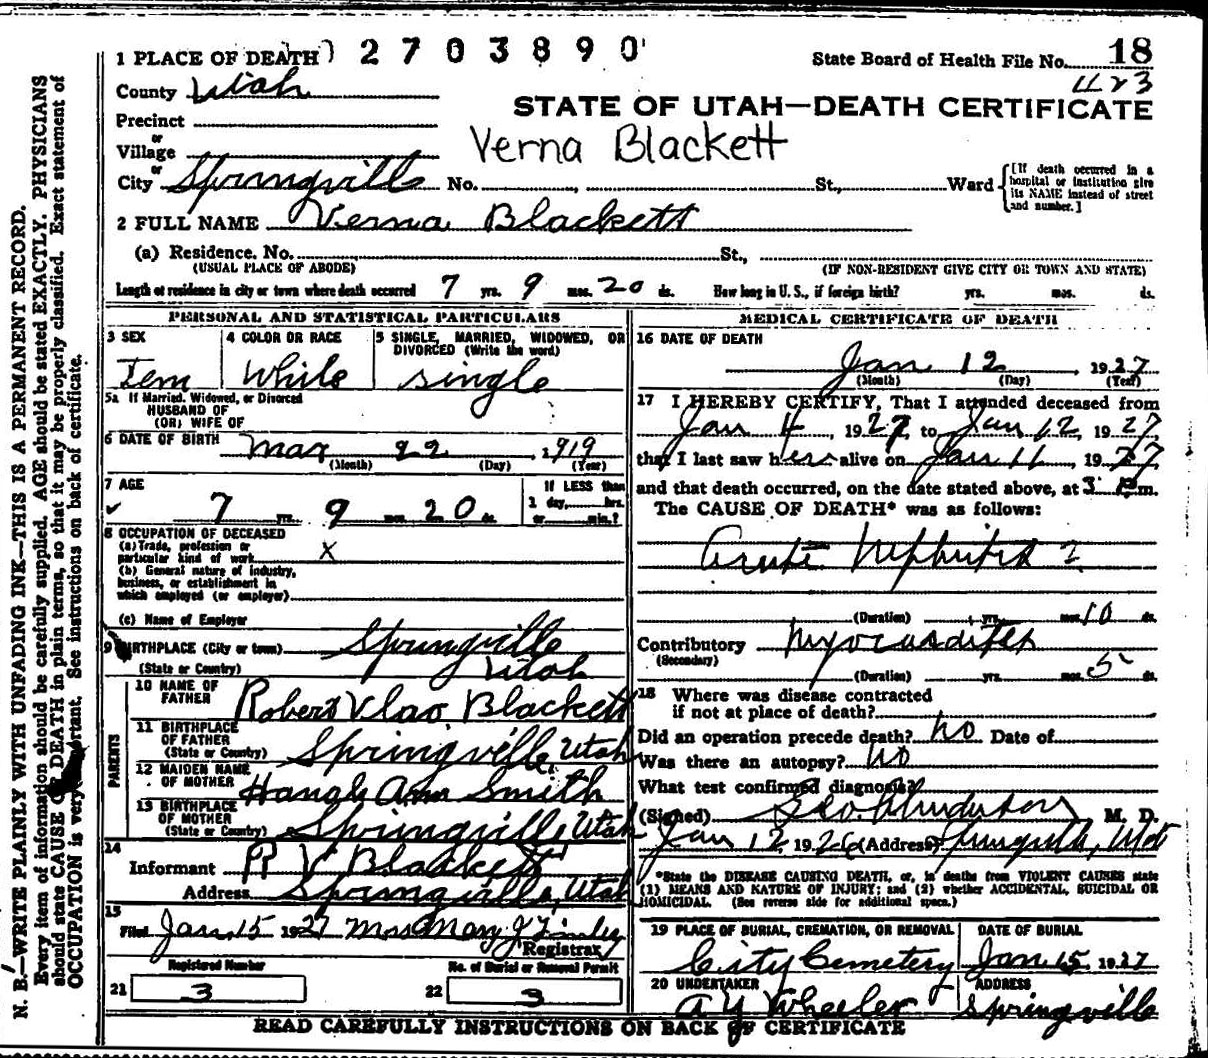 1 PLACE OF DEATH) 2 7 0 3 8 9 0
State Board of Health File No. 18
423
County Utah
STATE OF UTAH—DEATH CERTIFICATE
Precinct
or
Village
Verna Blackett
or
City Springville No. , St., Ward [If death occurred in a hospital or institution give its NAME instead of street and number.]
2 FULL NAME Verna Blackett
(a) Residence. No. St.,
(USUAL PLACE OF ABODE) (IF NON-RESIDENT GIVE CITY OR TOWN AND STATE)
Length of residence in city or town where death occurred 7 yrs. 9 mos. 20 ds. How long in U. S., if foreign birth? yrs. mos. ds.
PERSONAL AND STATISTICAL PARTICULARS
3 SEX 4 COLOR OR RACE 5 SINGLE, MARRIED, WIDOWED, OR
DIVORCED (Write the word)
Fem White single
5a If Married, Widowed, or Divorced
HUSBAND OF
(OR) WIFE OF
6 DATE OF BIRTH Mar 22, 1919
(Month) (Day) (Year)
7 AGE If LESS than
1 day, hrs.
7 yrs. 9 mos. 20 ds. or min.?
8 OCCUPATION OF DECEASED
(a) Trade, profession or
particular kind of work X
(b) General nature of industry,
business, or establishment in
which employed (or employer)
(c) Name of Employer
9 BIRTHPLACE (City or town) Springville
(State or Country) Utah
PARENTS
10 NAME OF
FATHER Robert Blackett
11 BIRTHPLACE
OF FATHER
(State or Country) Springville, Utah
12 MAIDEN NAME
OF MOTHER Ann Smith
13 BIRTHPLACE
OF MOTHER
(State or Country) Springville Utah
14
Informant R V Blackett
Address Springville, Utah
15
Filed Jan 15 1927 Mrs Mary J
Registrar
Registered Number No. of Burial or Removal Permit
21 3 22 3
MEDICAL CERTIFICATE OF DEATH
16 DATE OF DEATH
Jan 12 1927
(Month) (Day) (Year)
17 I HEREBY CERTIFY, That I attended deceased from
Jan 4, 1927, to Jan 12, 1927
that I last saw her alive on Jan 11, 1927
and that death occurred, on the date stated above, at 3 P.m.
The CAUSE OF DEATH* was as follows:
Acute Nephritis ?
(Duration) yrs. mos. 10 ds.
Contributory Myocarditis
(Secondary)
(Duration) yrs. mos. 5 ds.
18 Where was disease contracted
if not at place of death?
Did an operation precede death? no Date of
Was there an autopsy? no
What test confirmed diagnosis?
(Signed) Geo. Anderson M. D.
Jan 12 1926 (Address) Springville, Utah
*State the DISEASE CAUSING DEATH, or, in deaths from VIOLENT CAUSES state
(1) MEANS AND NATURE OF INJURY; and (2) whether ACCIDENTAL, SUICIDAL OR
HOMICIDAL. (See reverse side for additional space.)
19 PLACE OF BURIAL, CREMATION, OR REMOVAL DATE OF BURIAL
City Cemetery Jan 15 1927
20 UNDERTAKER ADDRESS
A Y Wheeler Springville
READ CAREFULLY INSTRUCTIONS ON BACK OF CERTIFICATE
N. B.—WRITE PLAINLY WITH UNFADING INK—THIS IS A PERMANENT RECORD.
Every item of information should be carefully supplied. AGE should be stated EXACTLY. PHYSICIANS
should state CAUSE OF DEATH in plain terms, so that it may be properly classified. Exact statement of
OCCUPATION is very important. See instructions on back of certificate.